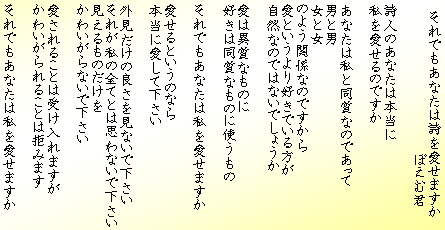 それでもあなたは詩を愛せますか
ぽえむ君
詩人のあなたは本当に
私を愛せるのですか
あなたは私と同質なのであって
男と男
女と女
のよう関係なのですから
愛というより好きでいる方が
自然なのではないでしょうか
愛は異質なものに
好きは同質なものに使うもの
それでもあなたは私を愛せますか
愛せるというのなら
本当に愛して下さい
外見だけの良さを見ないで下さい
それが私の全てとは思わないで下さい
見えるものだけを
かわいがらないで下さい
愛されることは受け入れますが
かわいがられることは拒みます
それでもあなたは私を愛せますか